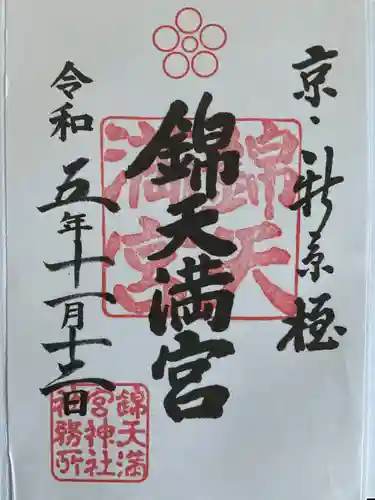 京・新京極
錦天満宮
錦天満宮
令和五年十一月十三日
錦天満宮神社神務所